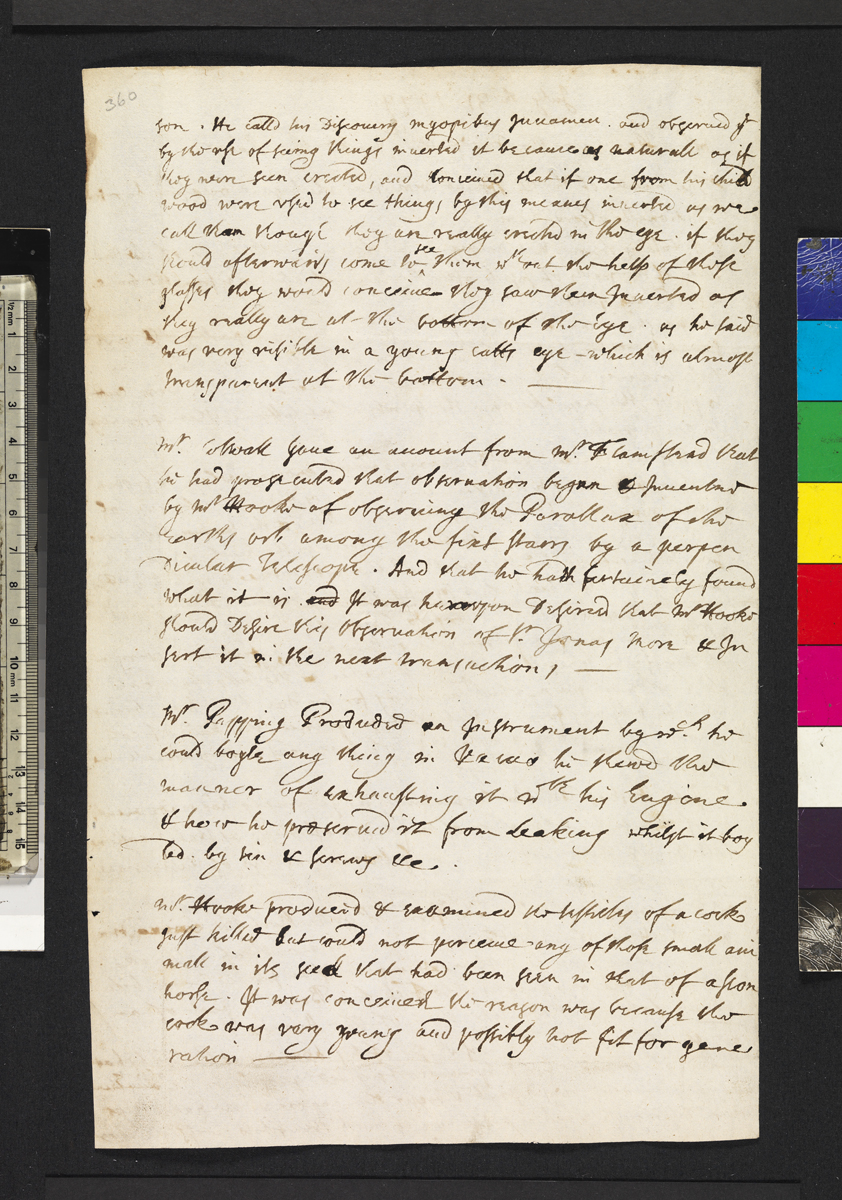 360
son. He calld his Discovery myopibus Juvamen. and observed yt
by the use of seeing things inverted it became as naturall as if
they were seen erected, and conceived that if one from his child
hood were used to see things by this means inverted as we
call them though they are really erected in the eye. if they
should afterwards come to see them wthout the help of those
glasses they would conceive they saw them Inverted as
they really are at the bottom of the eye. as he said
was very visible in a young catts eye which is almost
transparent at the bottom.
Mr. Colwall gave an account from Mr. Flamstead that
he had prosecuted that observation begun & Invented
by Mr Hooke of observing the Parallax of the
earths orb among the fixt starrs by a perpen
dicular Telescope. And that he hath certainely found
what it is and It was hereupon Desired that Mr Hooke
should Desire this observation of Sr Jonas More & In
sert it in the next transactions,
Mr. Papping Produced an Instrument by wch he
could boyle any thing in Vacuo he shewd the
manner of exhausting it wth his Engine
& how he preserved it from leaking whilst it boy
led. by tin & screws &c.
Mr. Hooke produced & examined the testicles of a cock
just killed but could not perceive any of those small ani
malls in its seed that had been seen in that of a ston
horse. It was conceived the reason was because the
cock was very young and possibly not fit for gene
ration
1/2 mm
1
2
3
4
5
6
7
8
9
10 mm
11
12
13
14
15